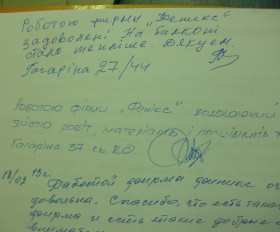 Роботою фирмы „Феникс"
задоволені. На балконі
стало тепліше. Дякуєм.
Гагаріна 27/44
Роботою фірми „Фенікс"
якістю робіт, матеріалів і
Гагаріна 37 кв 20
18/02 13г.
Работой фирмы феникс
довольна. Спасибо, что есть такая
фирма и есть такие добрые